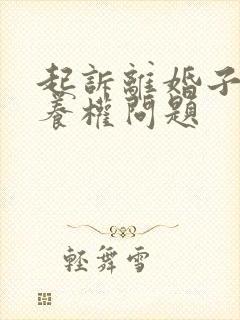 起訴離婚子
養權問題
輕舞雪